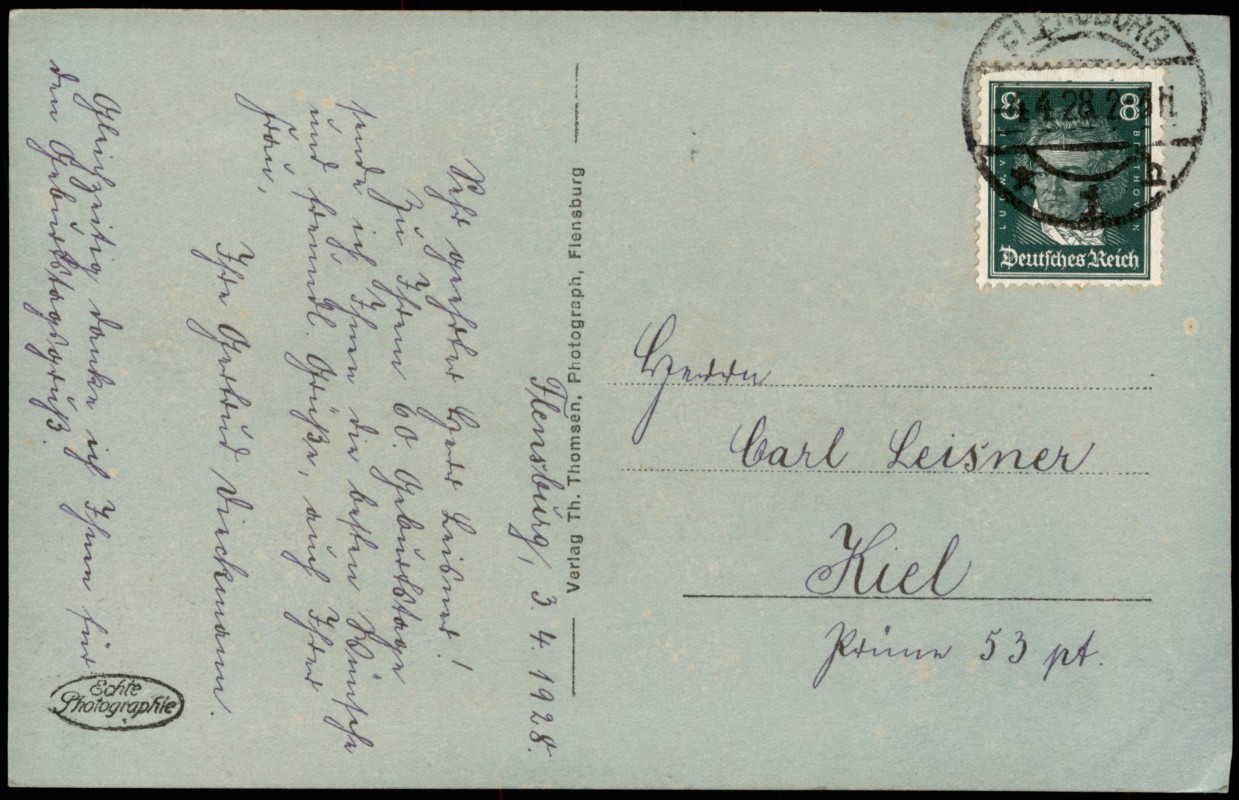 Flensburg, 3. 4. 1928.
Sehr geehrter Herr Leisner!
Zu Ihrem 60. Geburtstage
sende ich Ihnen die besten Wünsche
und freundl. Grüße, auch Ihrer
Frau,
Ihre Gertrud Dieckmann.
Gleichzeitig danke ich Ihnen für
den Geburtstagsgruß.
Echte
Photographie
Verlag Th. Thomsen, Photograph, Flensburg
FLENSBURG
4.28
* 1 b
8 8
LUDW. V. BEETHOVEN
Deutsches Reich
Herrn
Carl Leisner
Kiel
Prüne 53 pt.